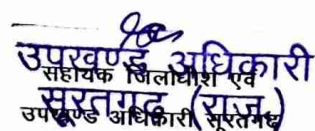 उपखण्ड अधिकारी
सहायक जिलाधीश एवं
सूरतगढ़ (राज.)
उपखण्ड अधिकारी सूरतगढ़